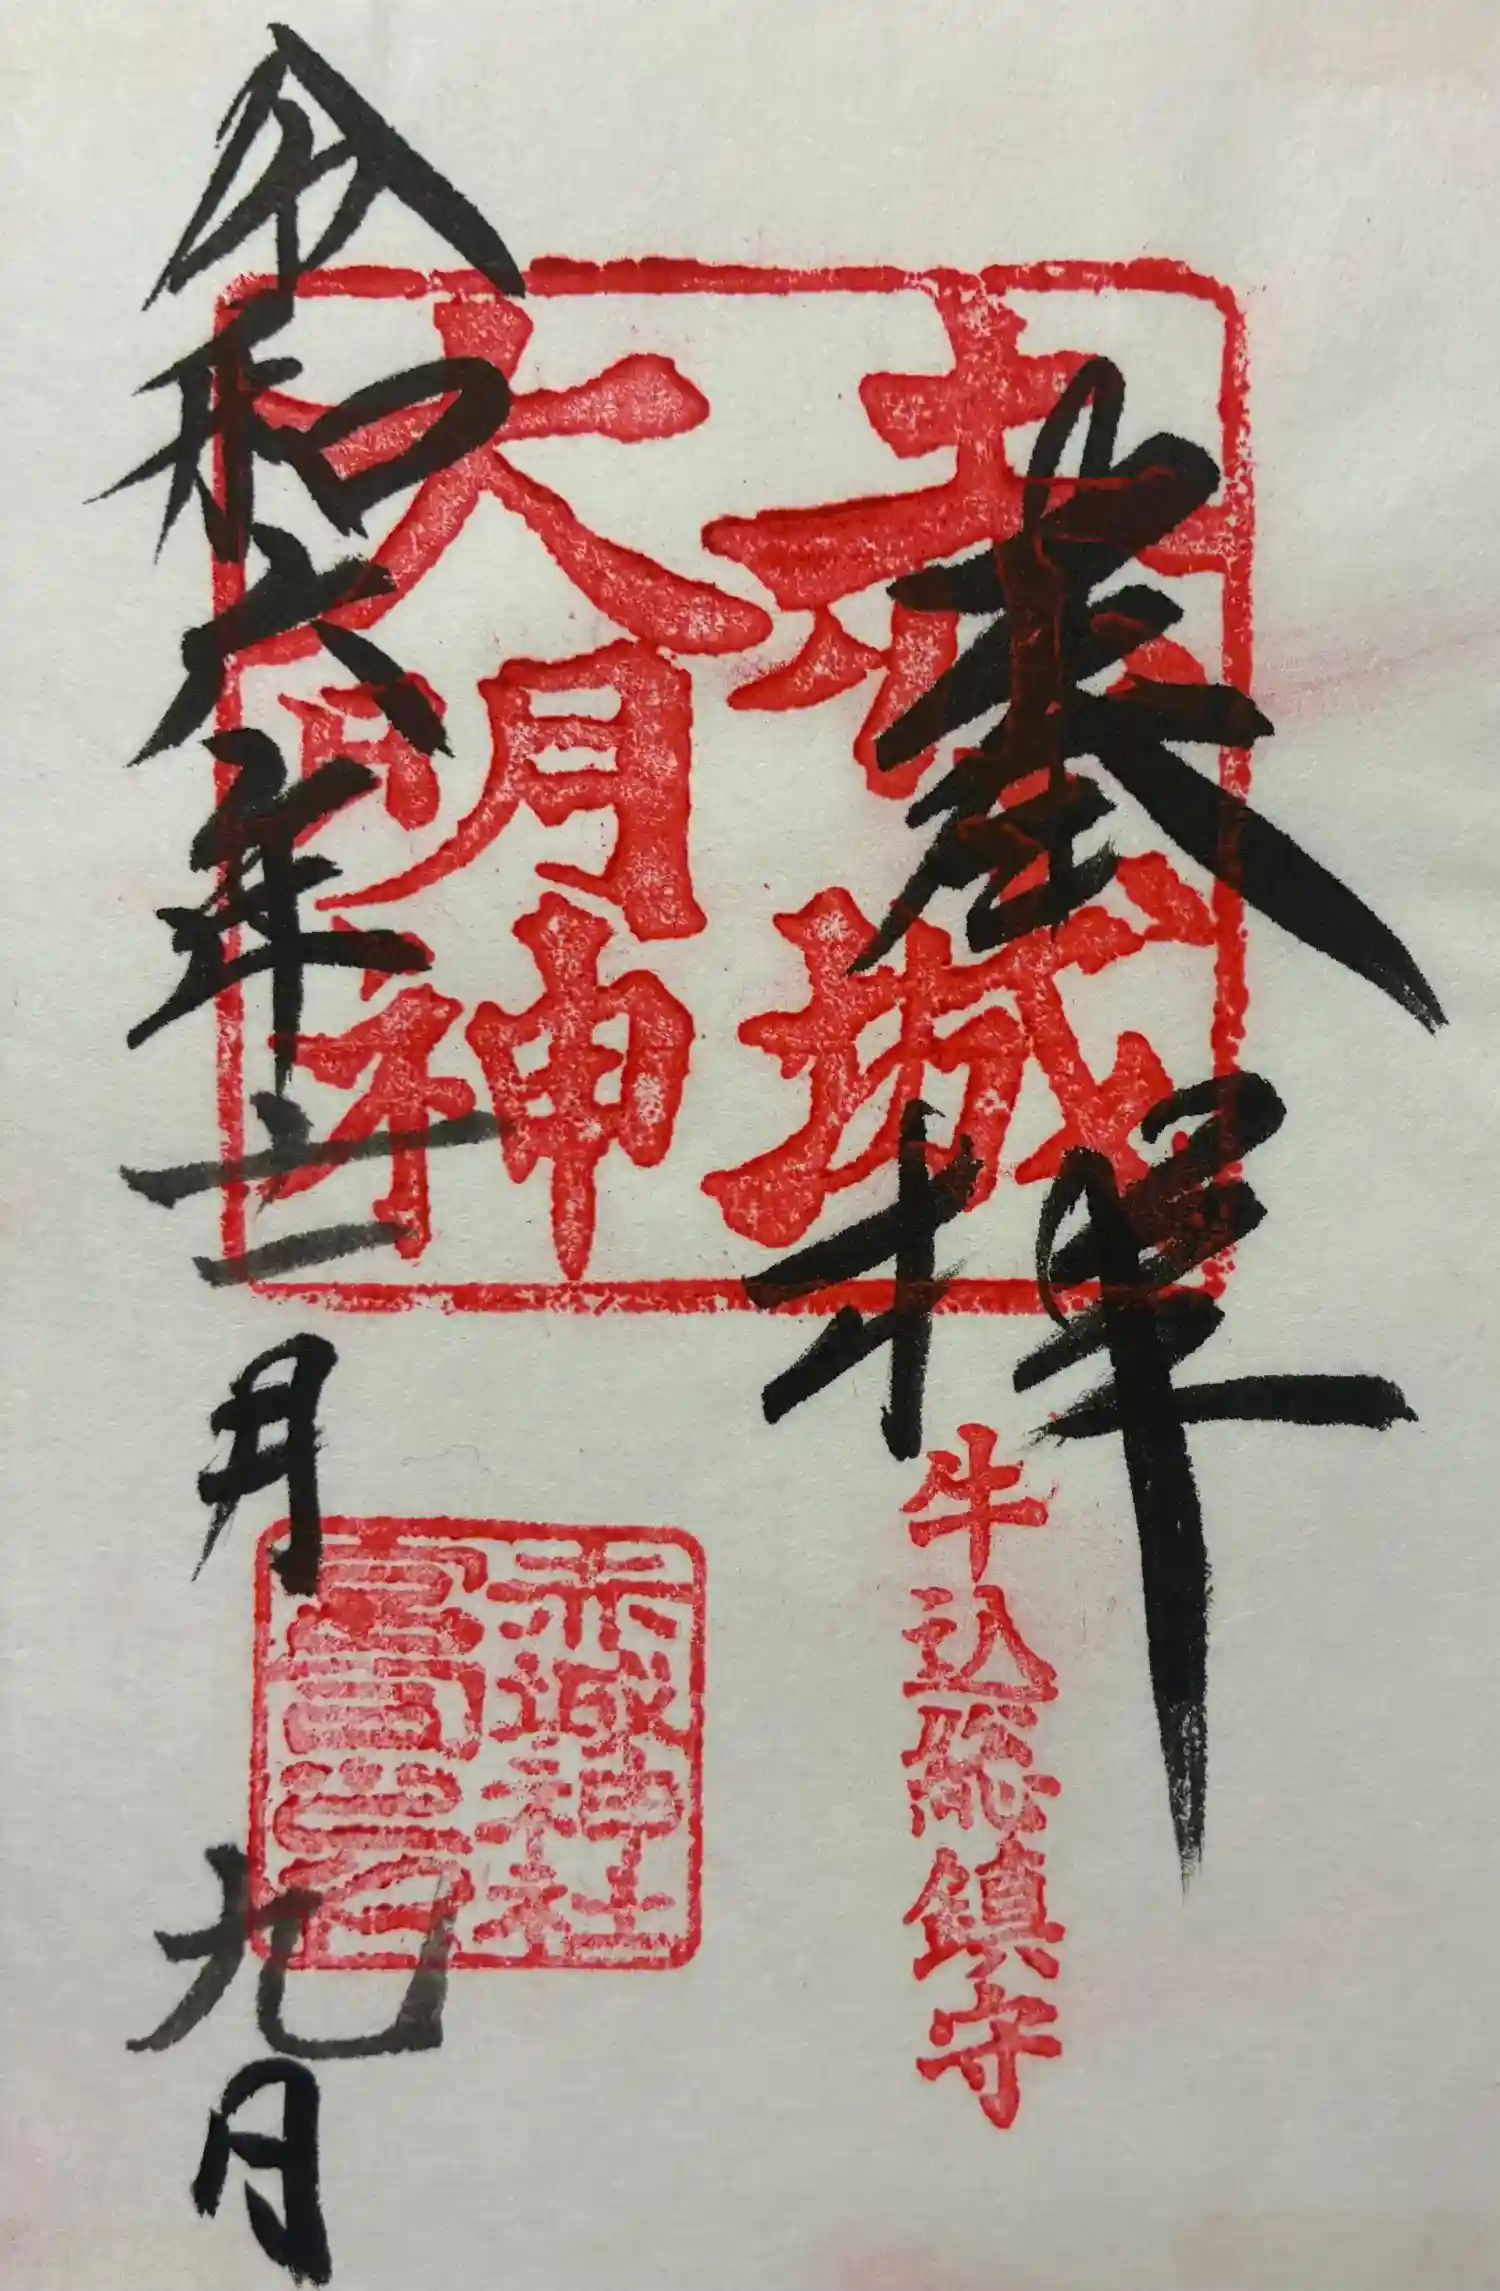 奉拝
赤城
大明神
牛込総鎮守
赤城神社
宮司之印
令和六年十一月九日